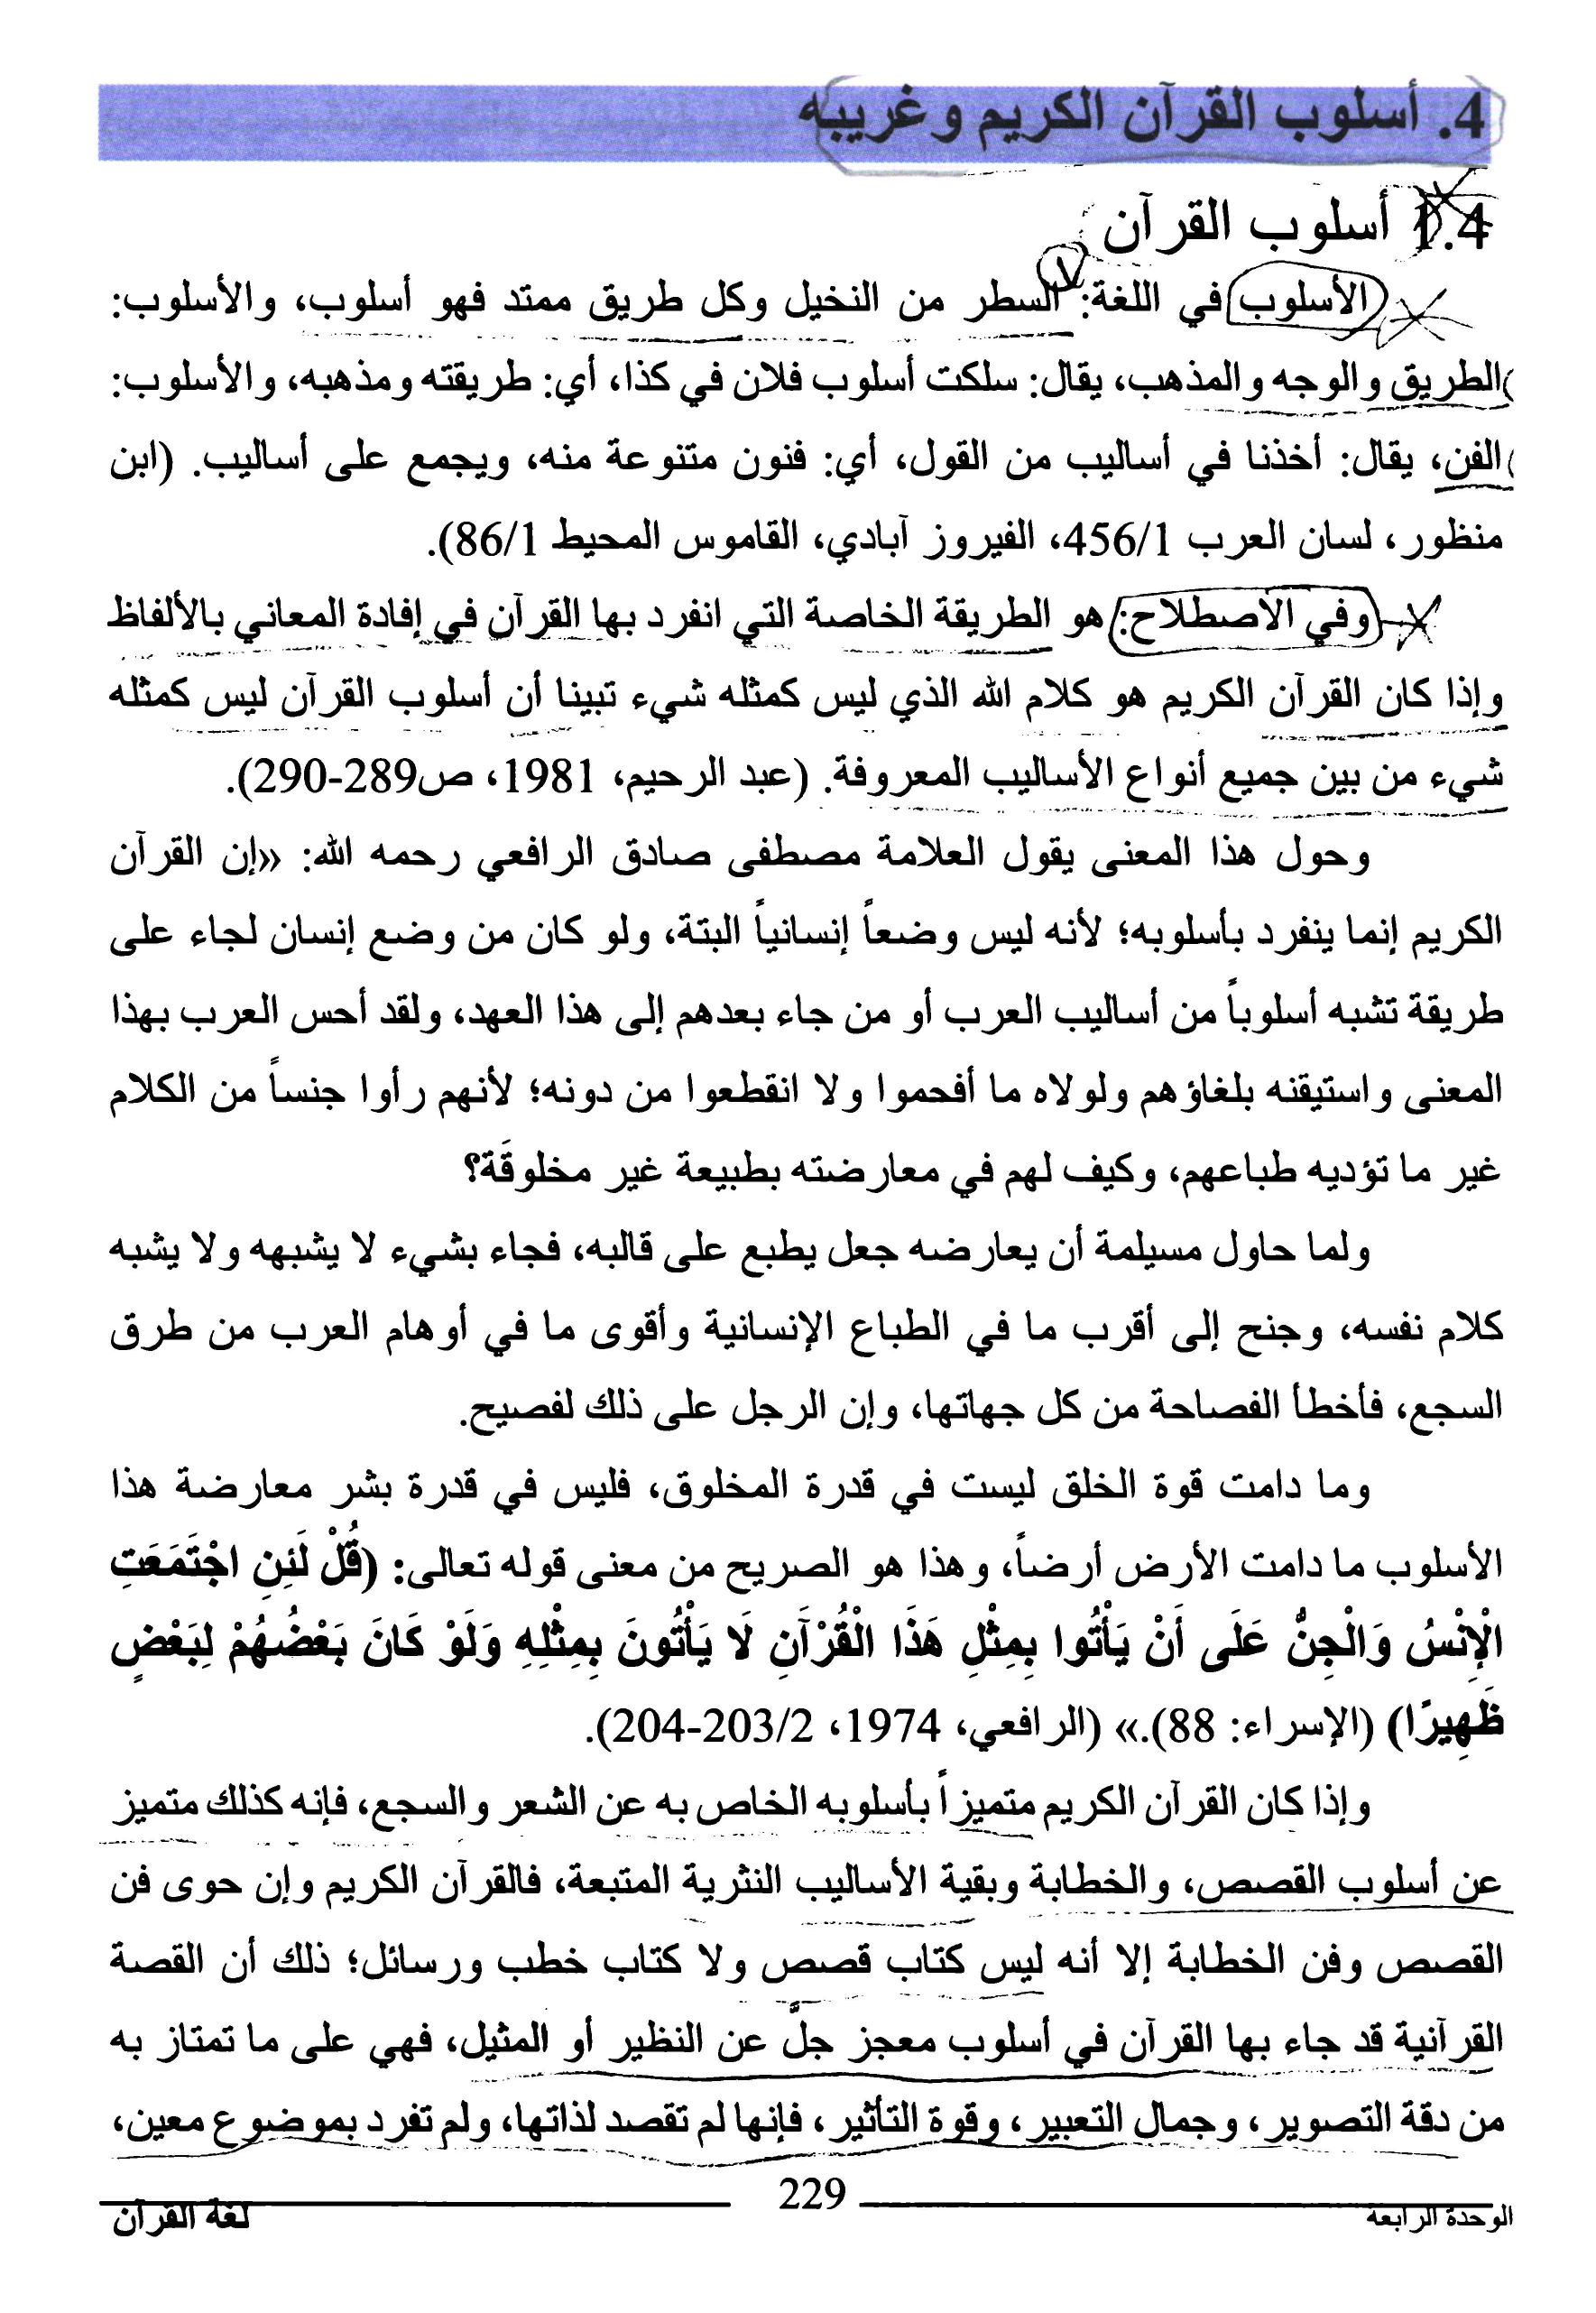 4. أسلوب القرآن الكريم وغريبه
1.4 أسلوب القرآن
الأسلوب في اللغة: السطر من النخيل وكل طريق ممتد فهو أسلوب، والأسلوب:
الطريق والوجه والمذهب، يقال: سلكت أسلوب فلان في كذا، أي: طريقته ومذهبه، والأسلوب:
الفن، يقال: أخذنا في أساليب من القول، أي: فنون متنوعة منه، ويجمع على أساليب. (ابن
منظور، لسان العرب 456/1، الفيروز آبادي، القاموس المحيط 86/1).
وفي الاصطلاح: هو الطريقة الخاصة التي انفرد بها القرآن في إفادة المعاني بالألفاظ
وإذا كان القرآن الكريم هو كلام الله الذي ليس كمثله شيء تبينا أن أسلوب القرآن ليس كمثله
شيء من بين جميع أنواع الأساليب المعروفة. (عبد الرحيم، 1981، ص289-290).
وحول هذا المعنى يقول العلامة مصطفى صادق الرافعي رحمه الله: «إن القرآن
الكريم إنما ينفرد بأسلوبه؛ لأنه ليس وضعاً إنسانياً البتة، ولو كان من وضع إنسان لجاء على
طريقة تشبه أسلوباً من أساليب العرب أو من جاء بعدهم إلى هذا العهد، ولقد أحس العرب بهذا
المعنى واستيقنه بلغاؤهم ولولاه ما أفحموا ولا انقطعوا من دونه؛ لأنهم رأوا جنساً من الكلام
غير ما تؤديه طباعهم، وكيف لهم في معارضته بطبيعة غير مخلوقَة؟
ولما حاول مسيلمة أن يعارضه جعل يطبع على قالبه، فجاء بشيء لا يشبهه ولا يشبه
كلام نفسه، وجنح إلى أقرب ما في الطباع الإنسانية وأقوى ما في أوهام العرب من طرق
السجع، فأخطأ الفصاحة من كل جهاتها، وإن الرجل على ذلك لفصيح.
وما دامت قوة الخلق ليست في قدرة المخلوق، فليس في قدرة بشر معارضة هذا
الأسلوب ما دامت الأرض أرضاً، وهذا هو الصريح من معنى قوله تعالى: (قُلْ لَئِنِ اجْتَمَعَتِ
الْإِنْسُ وَالْجِنُّ عَلَى أَنْ يَأْتُوا بِمِثْلِ هَذَا الْقُرْآَنِ لَا يَأْتُونَ بِمِثْلِهِ وَلَوْ كَانَ بَعْضُهُمْ لِبَعْضٍ
ظَهِيرًا) (الإسراء: 88).» (الرافعي، 1974، 203/2-204).
وإذا كان القرآن الكريم متميزاً بأسلوبه الخاص به عن الشعر والسجع، فإنه كذلك متميز
عن أسلوب القصص، والخطابة وبقية الأساليب النثرية المتبعة، فالقرآن الكريم وإن حوى فن
القصص وفن الخطابة إلا أنه ليس كتاب قصص ولا كتاب خطب ورسائل؛ ذلك أن القصة
القرآنية قد جاء بها القرآن في أسلوب معجز جلَّ عن النظير أو المثيل، فهي على ما تمتاز به
من دقة التصوير، وجمال التعبير، وقوة التأثير، فإنها لم تقصد لذاتها، ولم تفرد بموضوع معين،
الوحدة الرابعة 229 لغة القرآن